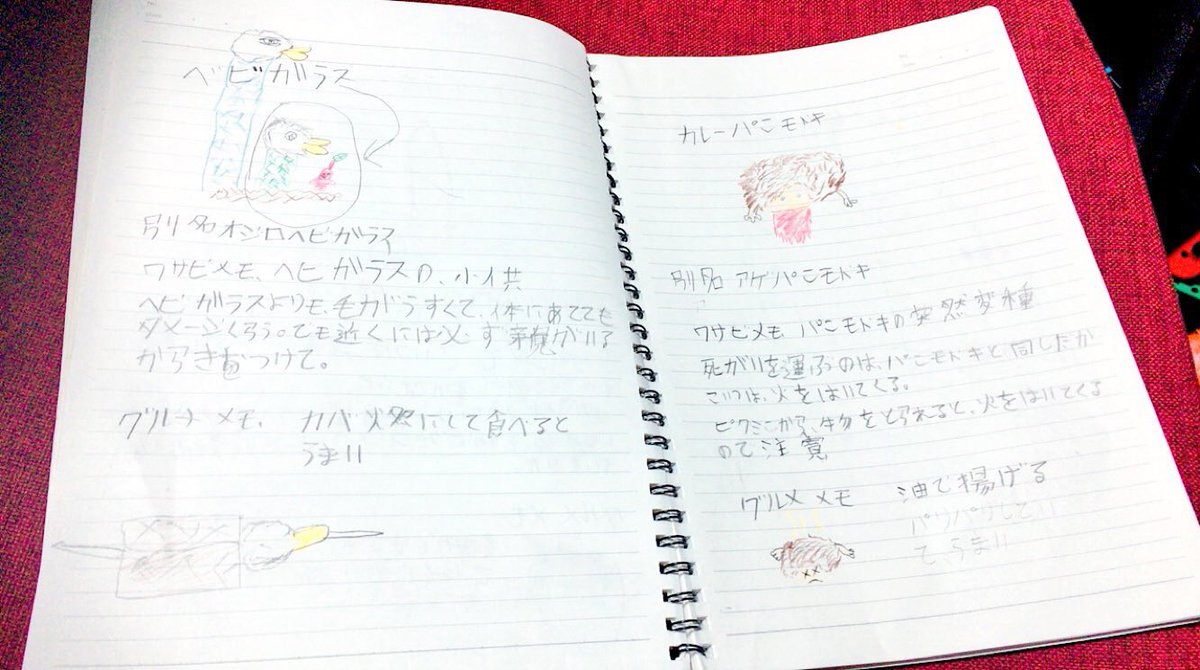 ベビガラス
別名オジロヘビガラス
ワサビメモ、ヘビガラスの、小イ共
ヘビガラスよりも、毛がうすくて、体にあてても
ダメージくらう。でも近くには必ず親がいる
から気をつけて。
グルメメモ、カバ火然にして食べると
うまい
カレーパンモドキ
別名 アゲパンモドキ
ワサビメモ パンモドキの突然変種
死がいを運ぶのは、パンモドキと同じだが
こいつは、火をはいてくる。
ピクミンが、生物をとらえると、火をはいてくる
ので注意
グルメメモ 油で揚げる
パリパリしてい
て、うまい